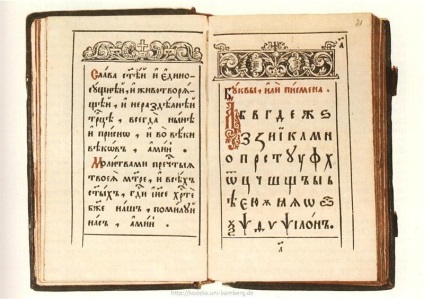 Слава ст҃ѣй и̑ є̑дино-
сꙋщнѣй, и̑ животворѧ-
щей, и̑ нераздѣлнѣй
трⷪ҇цѣ, всегда нынѣ
и̑ присно, и̑ во вѣки
вѣкѡмъ, а̑минь.
Молитвами пречⷭ҇тыѧ
твоеѧ̀ мт҃ре, и̑ всѣхъ
ст҃ыхъ, гдⷭ҇и і҆и҃се хрⷭ҇те
бж҃е нашъ, помилꙋй
насъ, а̑минь.
Бꙋквы, и̑ли писмена.
А б в г д е ж ѕ
з и і к л м н
о п р с т ꙋ у ф х
ѿ ц ч ш щ ъ ы ь
ѣ є ю ѫ ѧ ѡ
ѯ ѱ ѵ ѱилѡ́нъ.
а҃
http://kodeks.uni-bamberg.de